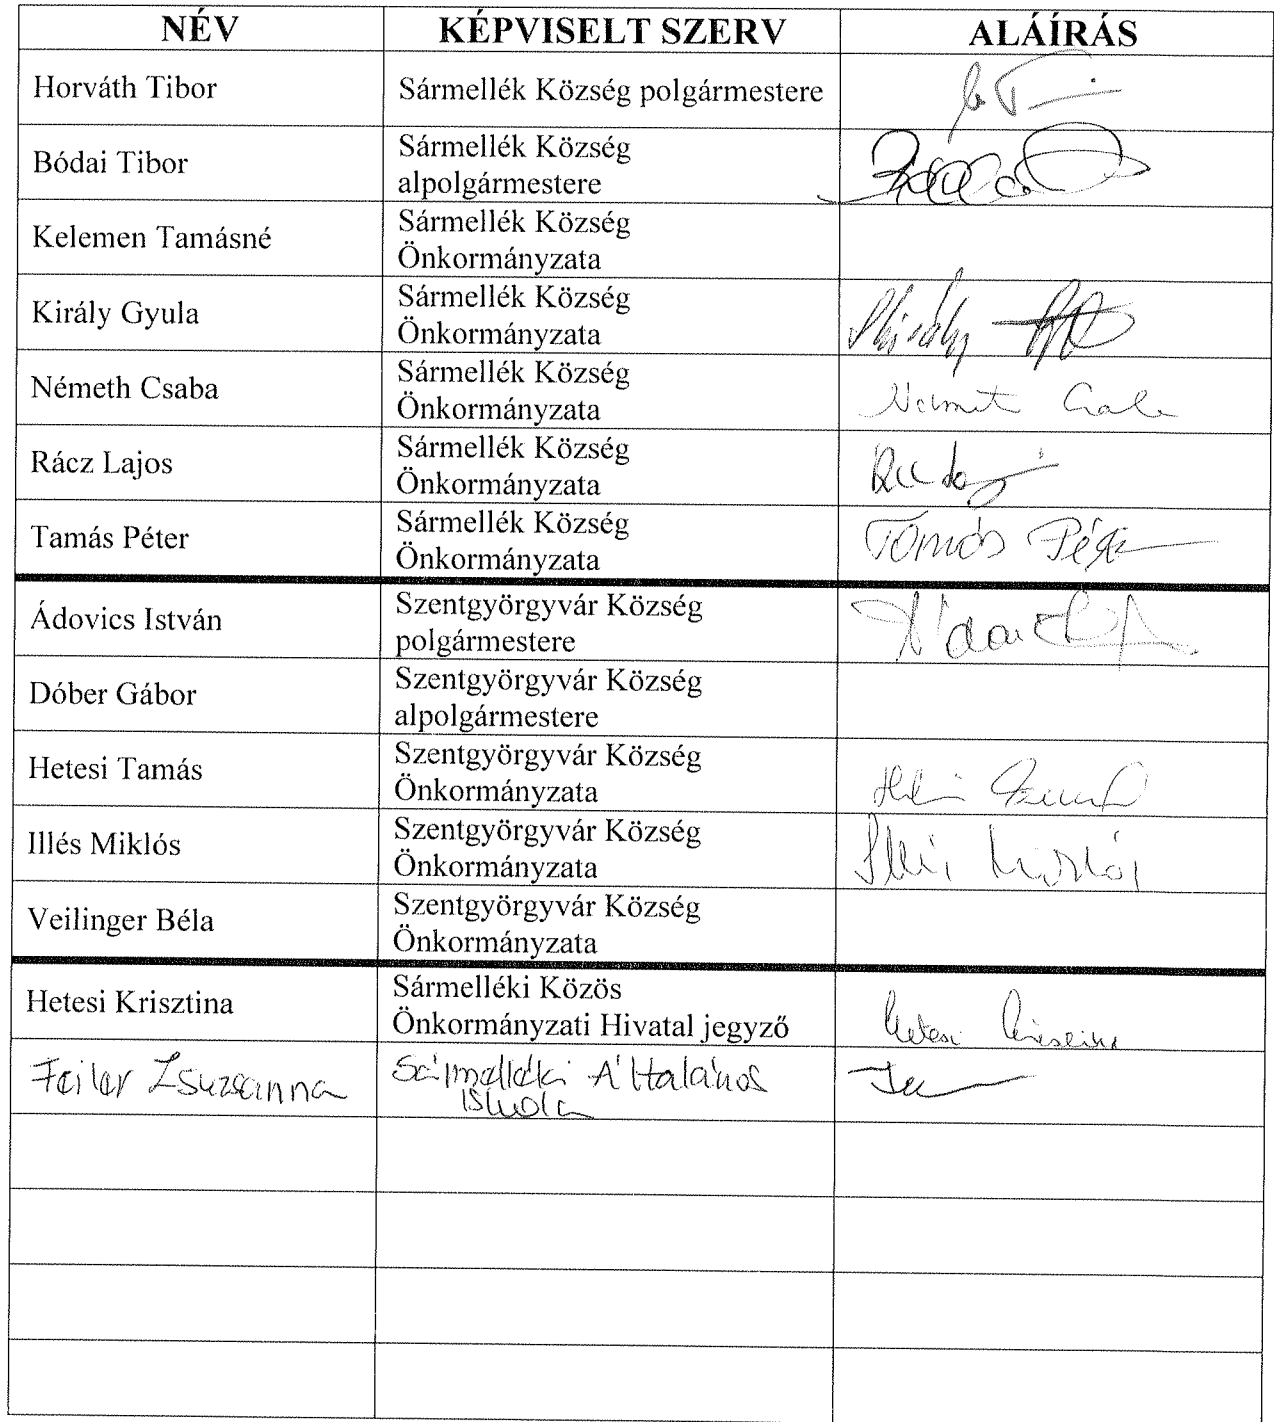 NÉV KÉPVISELT SZERV ALÁÍRÁS
Horváth Tibor Sármellék Község polgármestere
Bódai Tibor Sármellék Község
alpolgármestere
Kelemen Tamásné Sármellék Község
Önkormányzata
Király Gyula Sármellék Község
Önkormányzata
Németh Csaba Sármellék Község
Önkormányzata
Rácz Lajos Sármellék Község
Önkormányzata
Tamás Péter Sármellék Község
Önkormányzata Tamás Péter
Ádovics István Szentgyörgyvár Község
polgármestere
Dóber Gábor Szentgyörgyvár Község
alpolgármestere
Hetesi Tamás Szentgyörgyvár Község
Önkormányzata
Illés Miklós Szentgyörgyvár Község
Önkormányzata Illés Miklós
Veilinger Béla Szentgyörgyvár Község
Önkormányzata
Hetesi Krisztina Sármelléki Közös
Önkormányzati Hivatal jegyző Hetesi Krisztina
Feiler Zsuzsanna Sármelléki Általános
Iskola